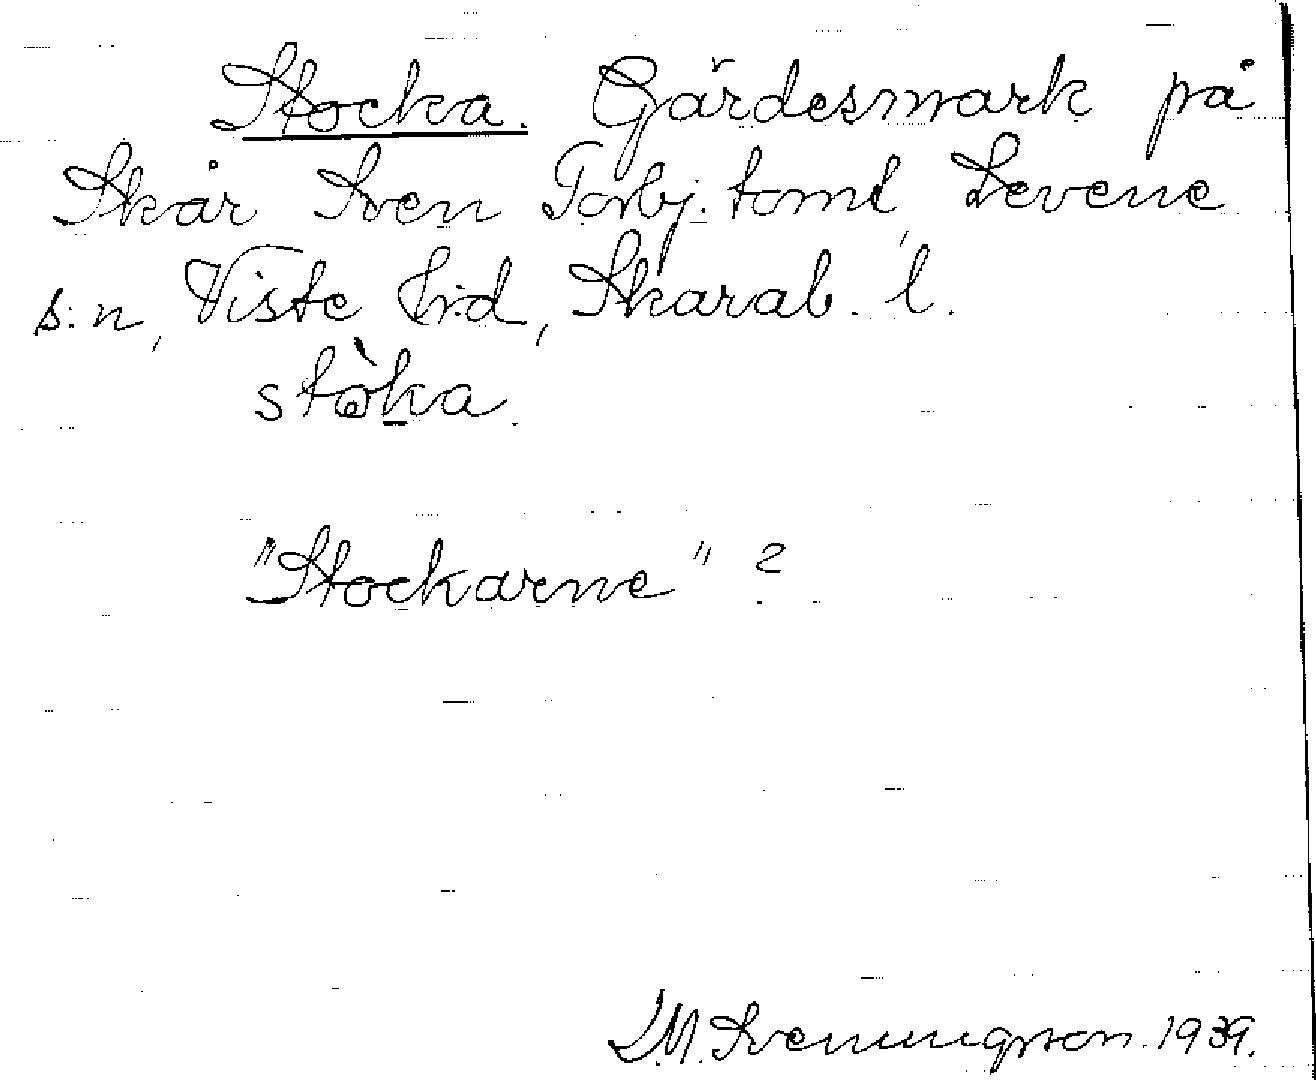 Stocka. Gärdesmark på
Skår Sven Torbj. tomt, Levene
s:n, Viste hrd, Skarab. l.
stòka.
"Stockarne" ?
D.M. Svenungsson. 1939.